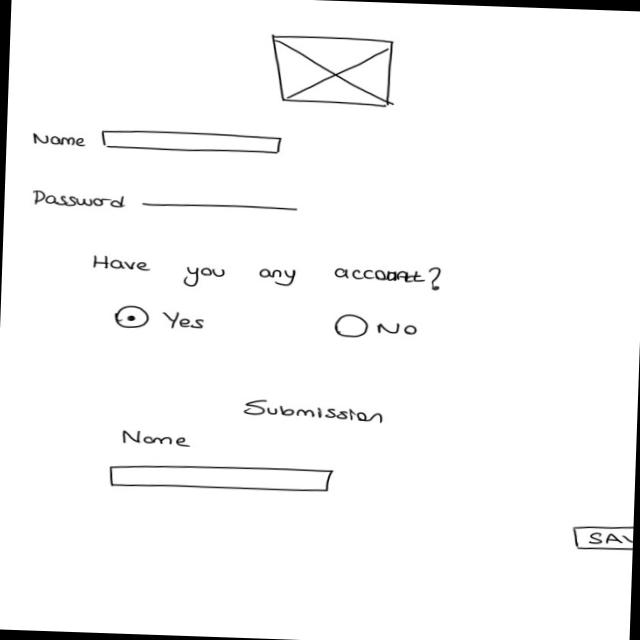 Name
Password
Have you any account?
Yes No
Submission
Name
SAV